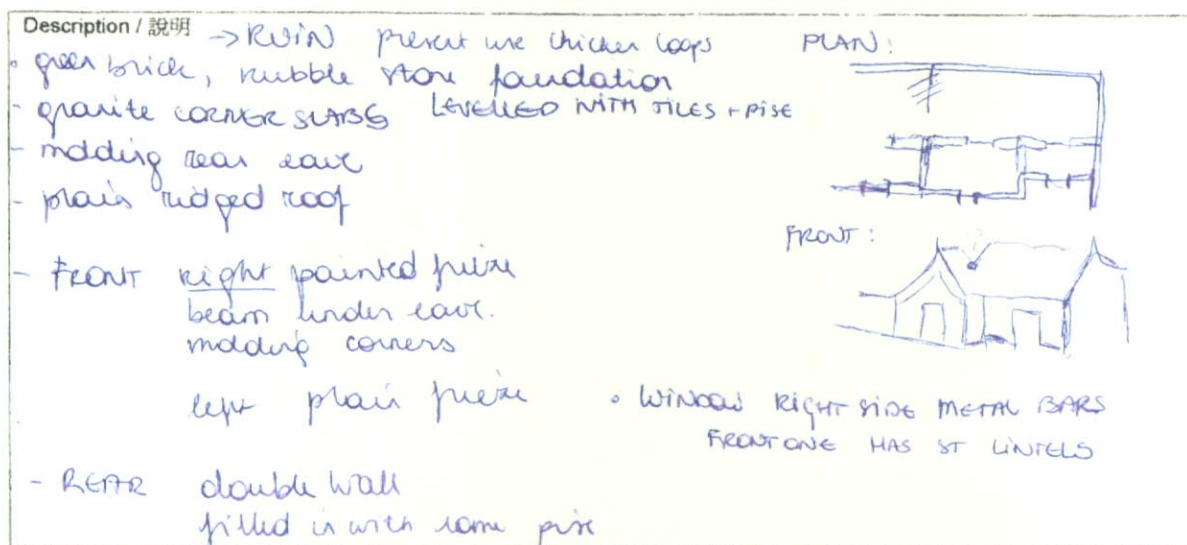 Description / 說明 → RUIN present use chicken coops
• green brick, rubble stone foundation
- granite CORNER SLABS LEVELLED WITH TILES + PISE
- molding rear eave
- plain ridged roof
PLAN:
FRONT:
- FRONT right painted frieze
beam under eave.
molding corners
left plain frieze
• WINDOW RIGHT SIDE METAL BARS
FRONT ONE HAS ST LINTELS
- REAR double wall
filled in with some pise